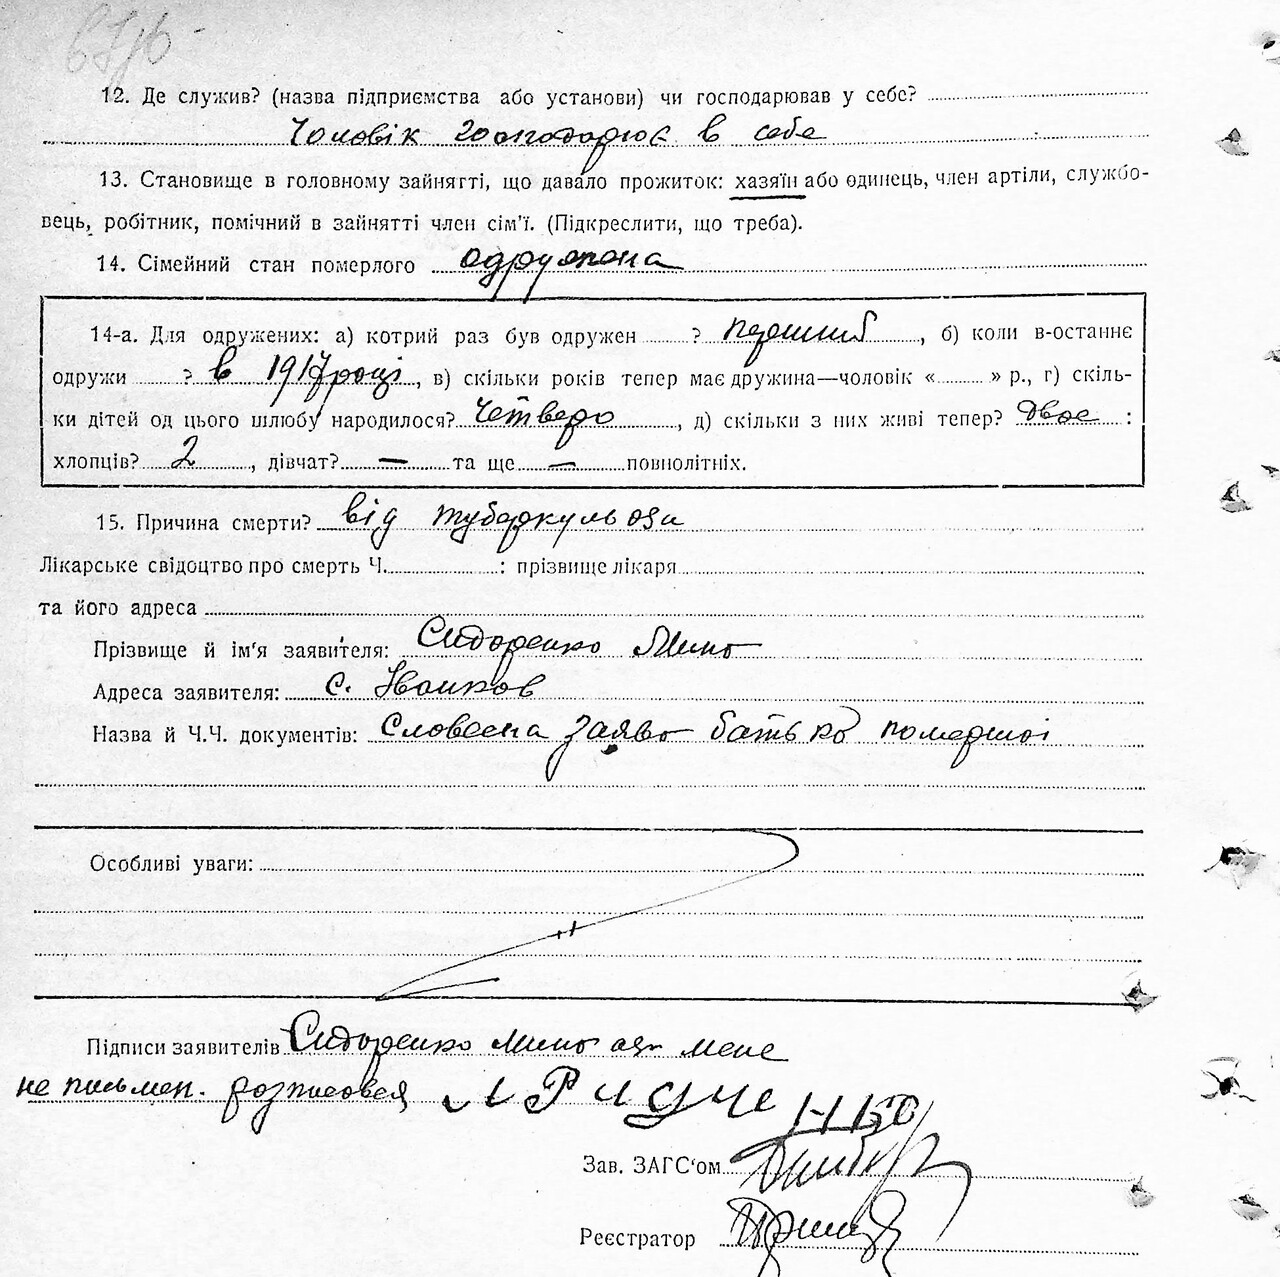 12. Де служив? (назва підприємства або установи) чи господарював у себе?
Чоловік господарює в себе
13. Становище в головному зайнятті, що давало прожиток: хазяїн або одинець, член артілі, службо-
вець, робітник, помічний в зайнятті член сім'ї. (Підкреслити, що треба).
14. Сімейний стан померлого одружена
14-а. Для одружених: а) котрий раз був одружен ? перший, б) коли в-останнє
одружи ? в 1917 році, в) скільки років тепер має дружина—чоловік « » р., г) скіль-
ки дітей од цього шлюбу народилося? Четверо, д) скільки з них живі тепер? двоє :
хлопців? 2, дівчат? — та ще — повнолітніх.
15. Причина смерти? від туберкульоза
Лікарське свідоцтво про смерть Ч. : прізвище лікаря
та його адреса
Прізвище й ім'я заявителя: Сидоренко
Адреса заявителя: с.
Назва й Ч.Ч. документів: Словесна заява батька помершої
Особливі уваги:
Підписи заявителів Сидоренко мене
не письмен. розписовся
Зав. ЗАГС'ом
Реєстратор